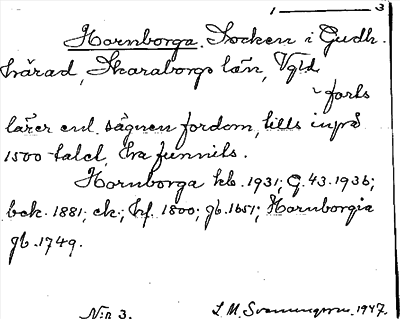 1 — 3
Hornborga. Socken i Gudh.
härad, Skaraborgs län, Vgtd.
~ forts
lärer enl. sägnen fordom, tills inpå
1500-talet, ha funnits.
Hornborga kb. 1931; G. 43. 1936;
bok. 1881; ek.; hf. 1800; gb. 1651; Hornborgia
gb. 1749.
N:r 3. L. M. Svanungson. 1947.